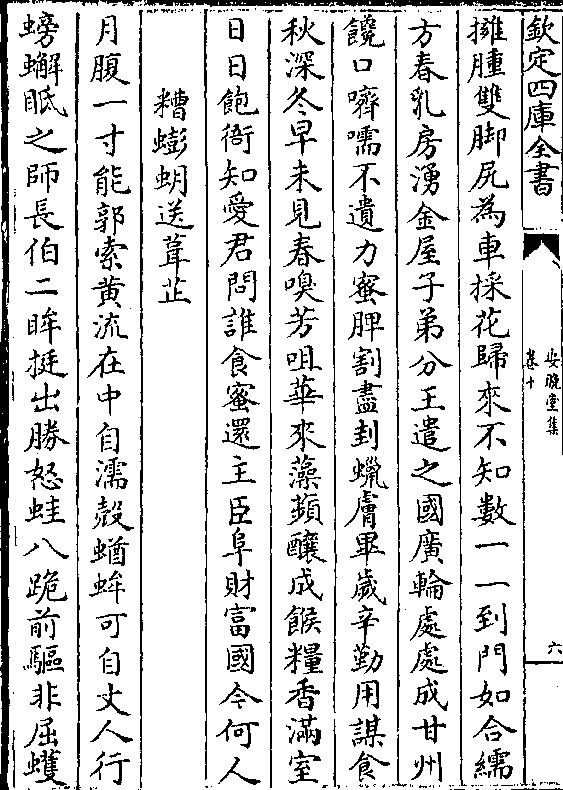 欽定四庫全書
安晚堂集
卷十
六
擁腫雙脚尻為車採花歸來不知數一一到門如合繻
方春乳房湧金屋子弟分王遣之國廣輪處處成甘州
饞口嚌嚅不遺力蜜脾割盡到蠟膚畢歲辛勤用謀食
秋深冬早未見春嗅芳咀華來藻蘋釀成餱糧香滿室
日日飽衙知愛君問誰食蜜還主臣阜財富國今何人
糟蟛蚏送葺芷
月腹一寸能郭索黄流在中自濡殻蝤蛑可自丈人行
螃蠏眂之師長伯二眸挺出勝怒蛙八跪前驅非屈蠖